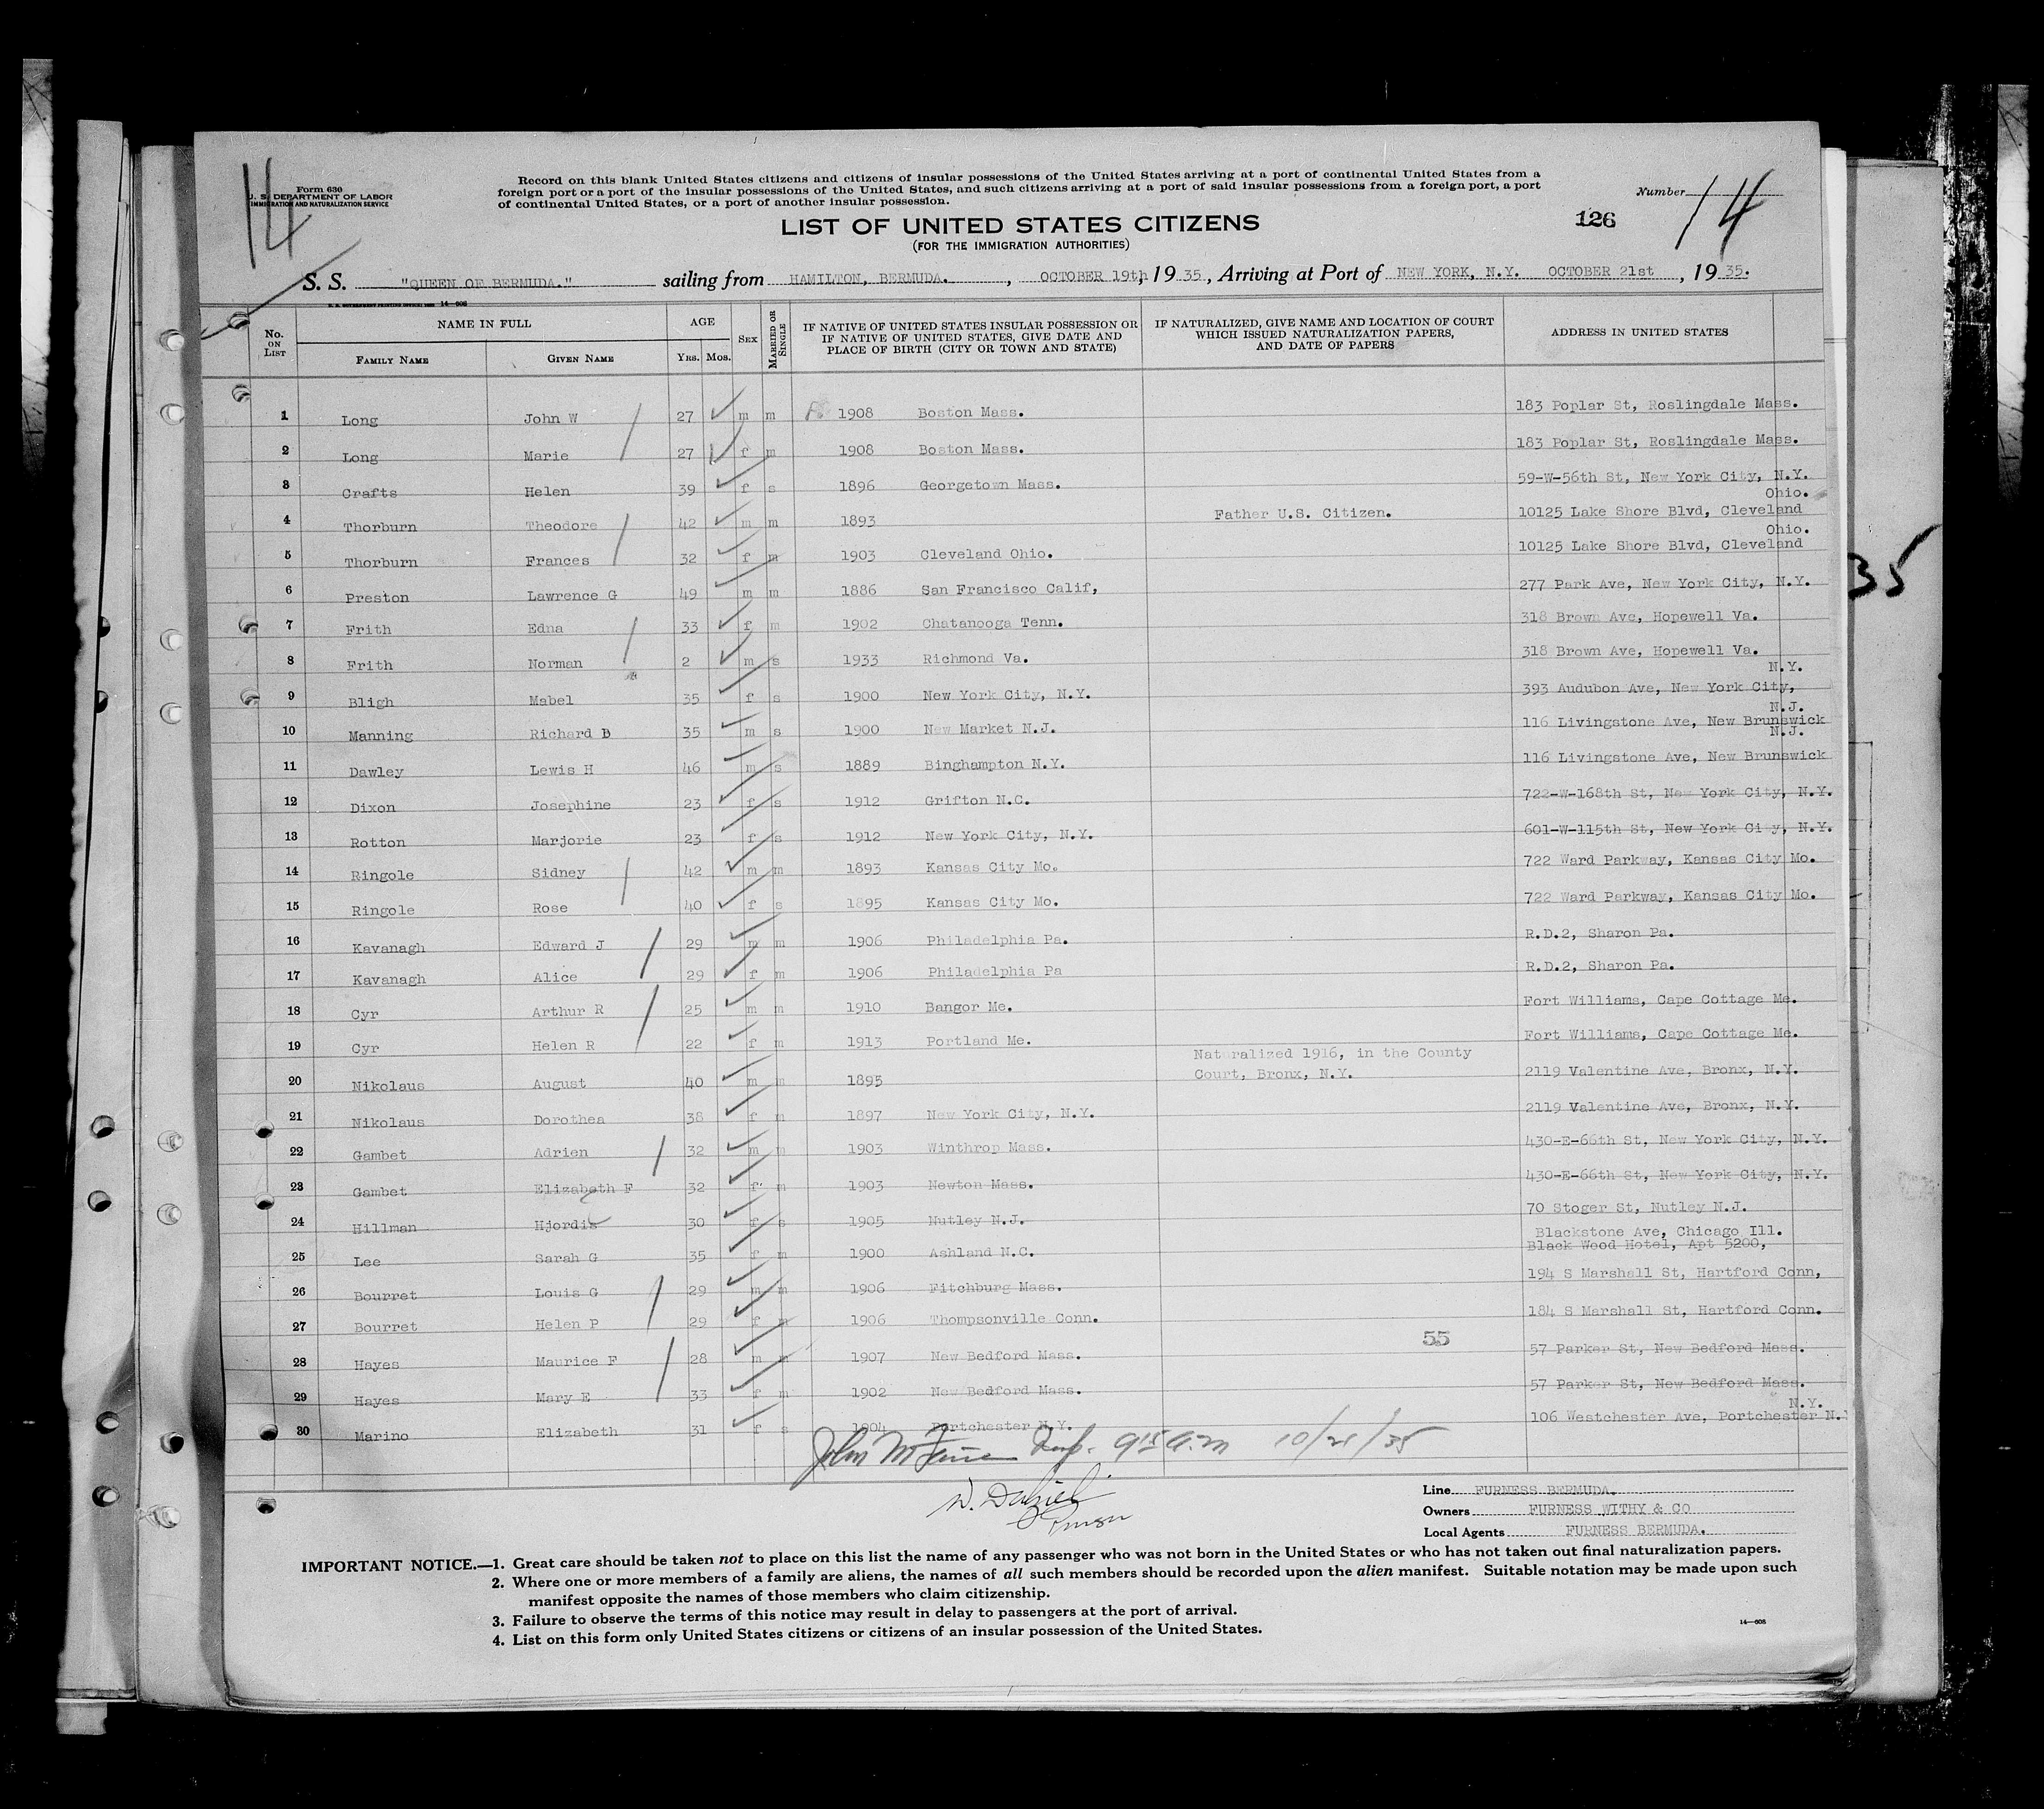 14
Form 630
U. S. DEPARTMENT OF LABOR
IMMIGRATION AND NATURALIZATION SERVICE
Record on this blank United States citizens and citizens of insular possessions of the United States arriving at a port of continental United States from a
foreign port or a port of the insular possessions of the United States, and such citizens arriving at a port of said insular possessions from a foreign port, a port
of continental United States, or a port of another insular possession.
Number 14
126
LIST OF UNITED STATES CITIZENS
(FOR THE IMMIGRATION AUTHORITIES)
S. S. "QUEEN OF BERMUDA." sailing from HAMILTON, BERMUDA. , OCTOBER 19th, 1935, Arriving at Port of NEW YORK, N.Y. OCTOBER 21st , 1935.
No. ON LIST NAME IN FULL FAMILY NAME GIVEN NAME AGE YRS. MOS. SEX MARRIED OR SINGLE
IF NATIVE OF UNITED STATES INSULAR POSSESSION OR
IF NATIVE OF UNITED STATES, GIVE DATE AND
PLACE OF BIRTH (CITY OR TOWN AND STATE)
IF NATURALIZED, GIVE NAME AND LOCATION OF COURT
WHICH ISSUED NATURALIZATION PAPERS,
AND DATE OF PAPERS
ADDRESS IN UNITED STATES
1 Long John W 27 m m 1908 Boston Mass. 183 Poplar St, Roslingdale Mass.
2 Long Marie 27 f m 1908 Boston Mass. 183 Poplar St, Roslingdale Mass.
3 Crafts Helen 39 f s 1896 Georgetown Mass. 59-W-56th St, New York City, N.Y.
4 Thorburn Theodore 42 m m 1893 Father U.S. Citizen. 10125 Lake Shore Blvd, Cleveland Ohio.
5 Thorburn Frances 32 f m 1903 Cleveland Ohio. 10125 Lake Shore Blvd, Cleveland Ohio.
6 Preston Lawrence G 49 m m 1886 San Francisco Calif, 277 Park Ave, New York City, N.Y.
7 Frith Edna 33 f m 1902 Chatanooga Tenn. 318 Brown Ave, Hopewell Va.
8 Frith Norman 2 m s 1933 Richmond Va. 318 Brown Ave, Hopewell Va.
9 Bligh Mabel 35 f s 1900 New York City, N.Y. 393 Audubon Ave, New York City, N.Y.
10 Manning Richard B 35 m s 1900 New Market N.J. 116 Livingstone Ave, New Brunswick N.J.
11 Dawley Lewis H 46 m s 1889 Binghampton N.Y. 116 Livingstone Ave, New Brunswick N.J.
12 Dixon Josephine 23 f s 1912 Grifton N.C. 722-W-168th St, New York City, N.Y.
13 Rotton Marjorie 23 f s 1912 New York City, N.Y. 601-W-115th St, New York City, N.Y.
14 Ringole Sidney 42 m m 1893 Kansas City Mo. 722 Ward Parkway, Kansas City Mo.
15 Ringole Rose 40 f s 1895 Kansas City Mo. 722 Ward Parkway, Kansas City Mo.
16 Kavanagh Edward J 29 m m 1906 Philadelphia Pa. R.D.2, Sharon Pa.
17 Kavanagh Alice 29 f m 1906 Philadelphia Pa R.D.2, Sharon Pa.
18 Cyr Arthur R 25 m m 1910 Bangor Me. Fort Williams, Cape Cottage Me.
19 Cyr Helen R 22 f m 1913 Portland Me. Fort Williams, Cape Cottage Me.
20 Nikolaus August 40 m m 1895 Naturalized 1916, in the County Court, Bronx, N.Y. 2119 Valentine Ave, Bronx, N.Y.
21 Nikolaus Dorothea 38 f m 1897 New York City, N.Y. 2119 Valentine Ave, Bronx, N.Y.
22 Gambet Adrien 32 m m 1903 Winthrop Mass. 430-E-66th St, New York City, N.Y.
23 Gambet Elizabeth F 32 f m 1903 Newton Mass. 430-E-66th St, New York City, N.Y.
24 Hillman Hjordis 30 f s 1905 Nutley N.J. 70 Stoger St, Nutley N.J.
25 Lee Sarah G 35 f m 1900 Ashland N.C. Blackstone Ave, Chicago Ill. Black Wood Hotel, Apt 5200,
26 Bourret Louis G 29 m m 1906 Fitchburg Mass. 194 S Marshall St, Hartford Conn,
27 Bourret Helen P 29 f m 1906 Thompsonville Conn. 184 S Marshall St, Hartford Conn.
55
28 Hayes Maurice F 28 m m 1907 New Bedford Mass. 57 Parker St, New Bedford Mass.
29 Hayes Mary E 33 f m 1902 New Bedford Mass. 57 Parker St, New Bedford Mass.
30 Marino Elizabeth 31 f s 1904 Portchester N.Y. 106 Westchester Ave, Portchester N.Y.
John 9 15 a.m 10/21/35
Line FURNESS BERMUDA.
Owners FURNESS WITHY & CO
Local Agents FURNESS BERMUDA.
IMPORTANT NOTICE.—1. Great care should be taken not to place on this list the name of any passenger who was not born in the United States or who has not taken out final naturalization papers.
2. Where one or more members of a family are aliens, the names of all such members should be recorded upon the alien manifest. Suitable notation may be made upon such
manifest opposite the names of those members who claim citizenship.
3. Failure to observe the terms of this notice may result in delay to passengers at the port of arrival.
4. List on this form only United States citizens or citizens of an insular possession of the United States.
14—608
35